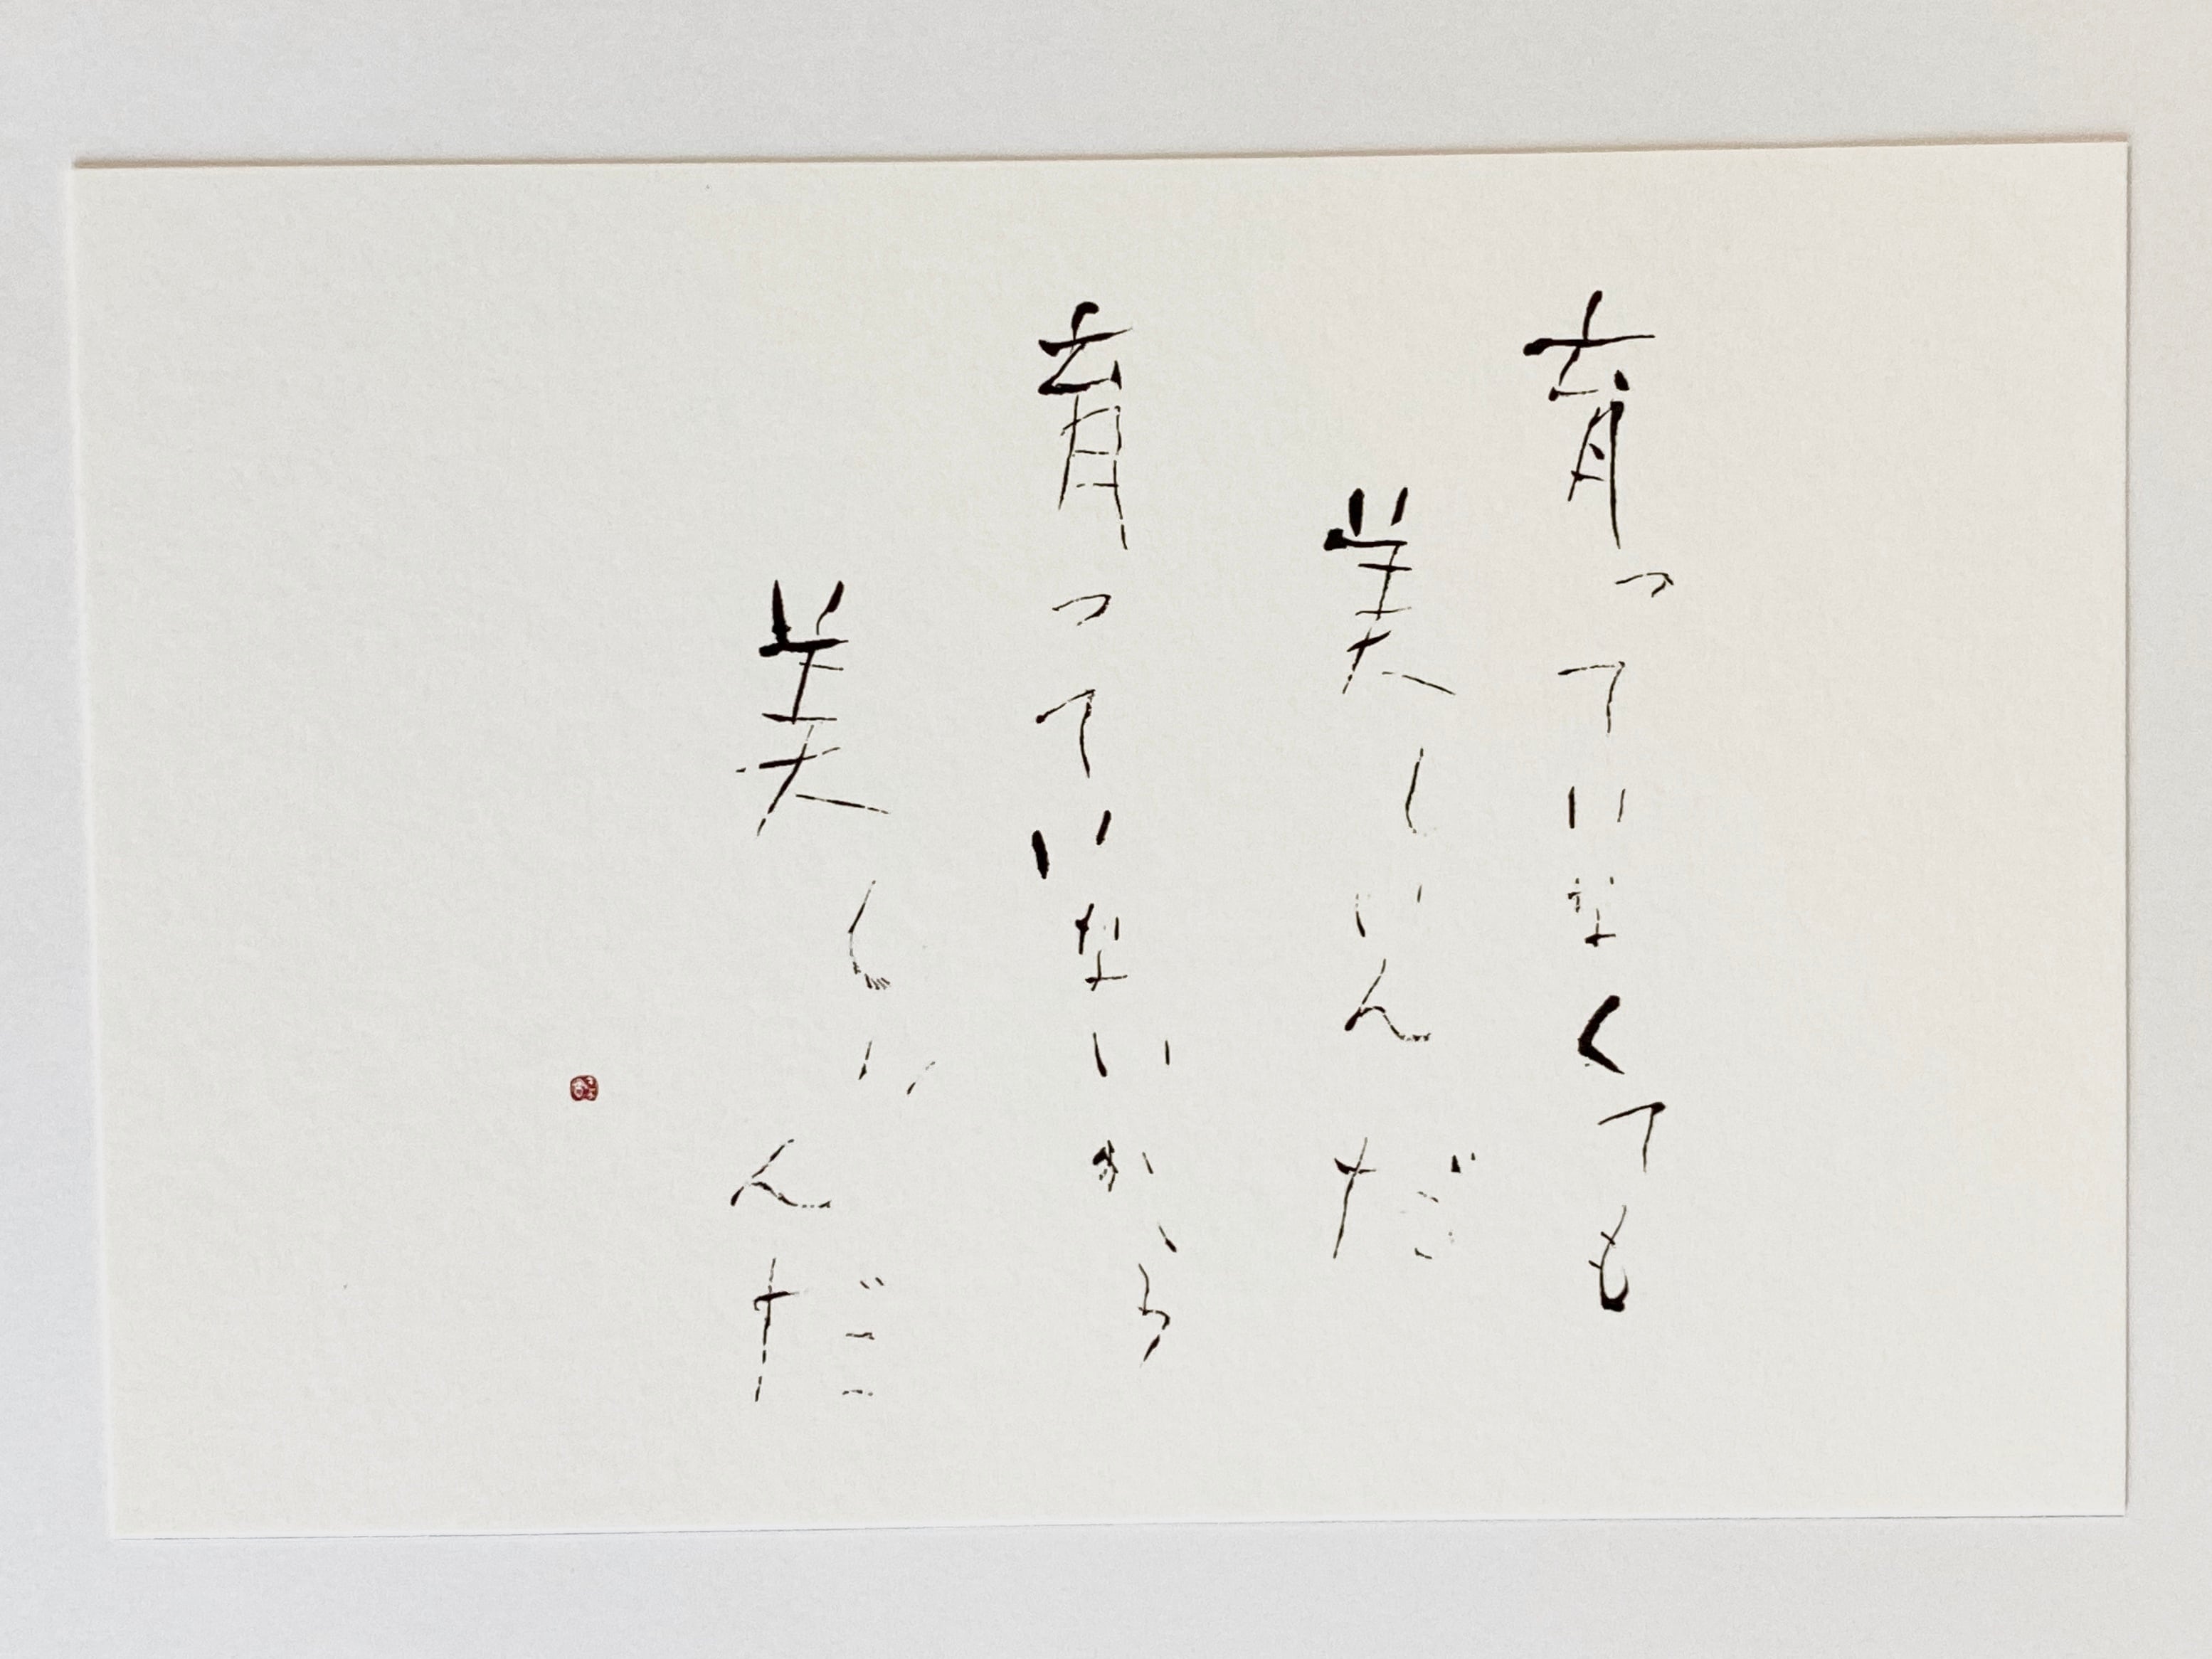 育っていなくても
美しいんだ
育っていないから
美しいんだ